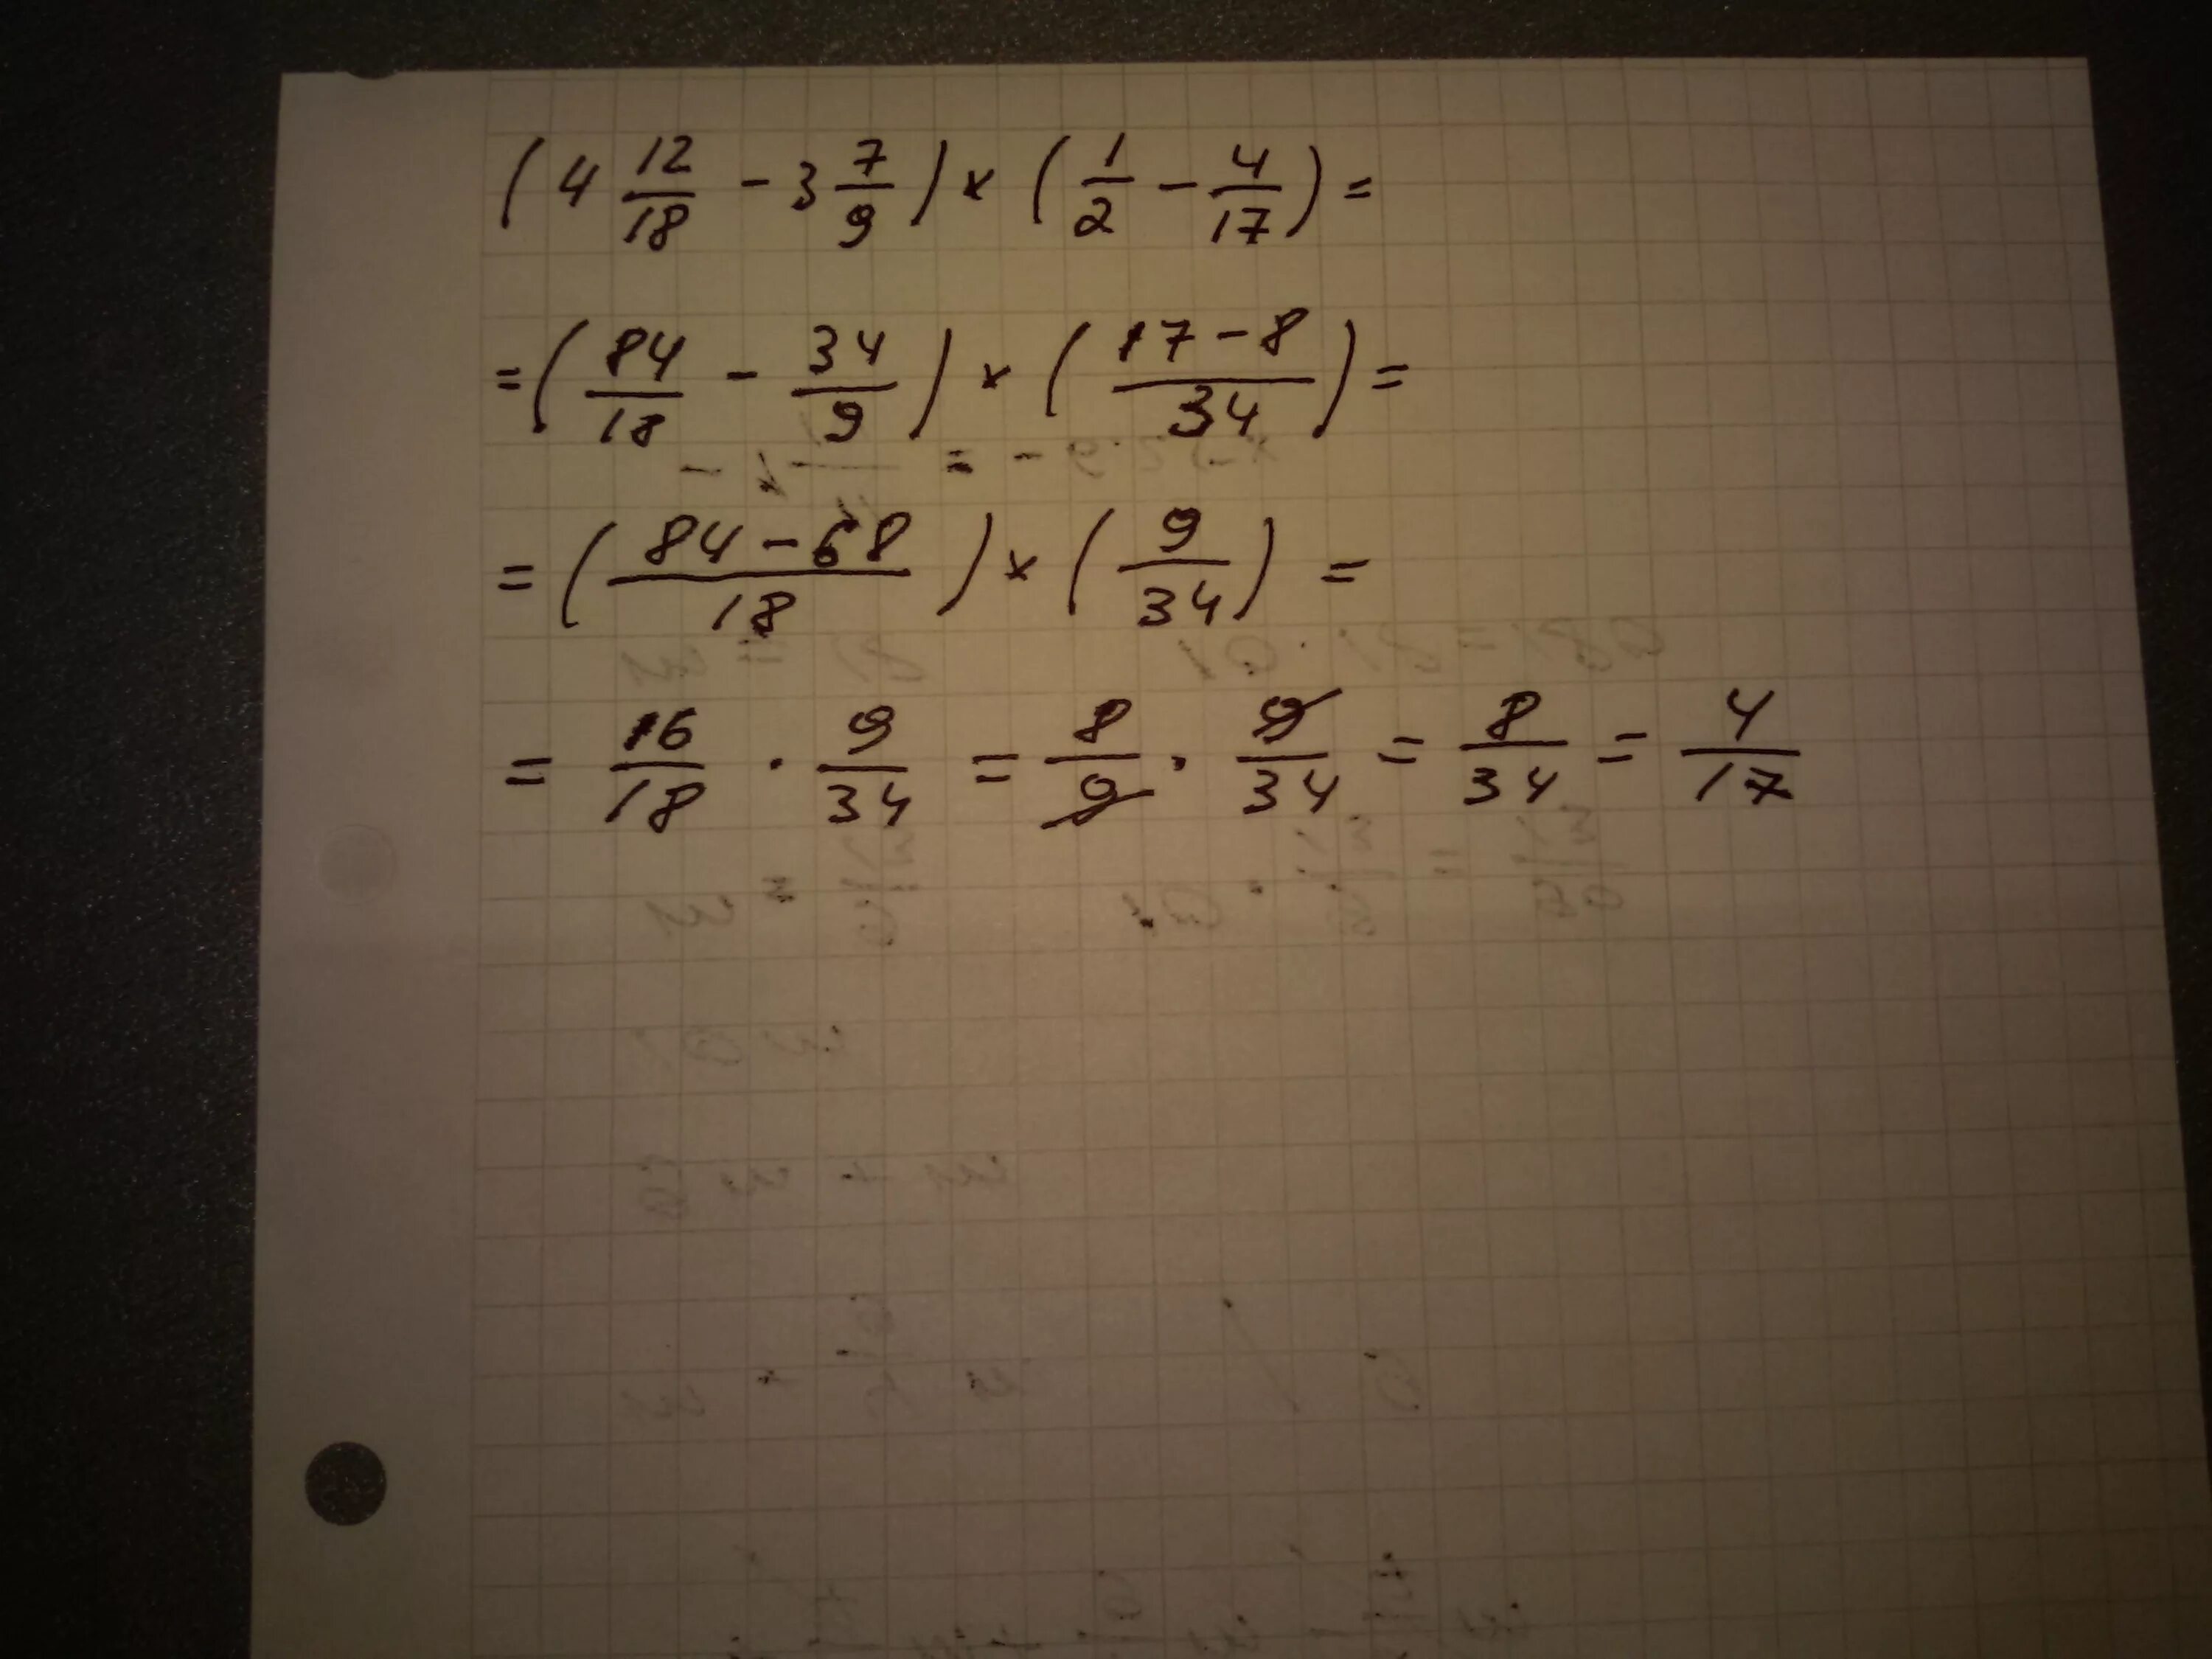 (4 12/18 - 3 7/9) × (1/2 - 4/17) =
= (84/18 - 34/9) × (17-8/34) =
= (84-68/18) × (9/34) =
= 16/18 · 9/34 = 8/9 · 9/34 = 8/34 = 4/17